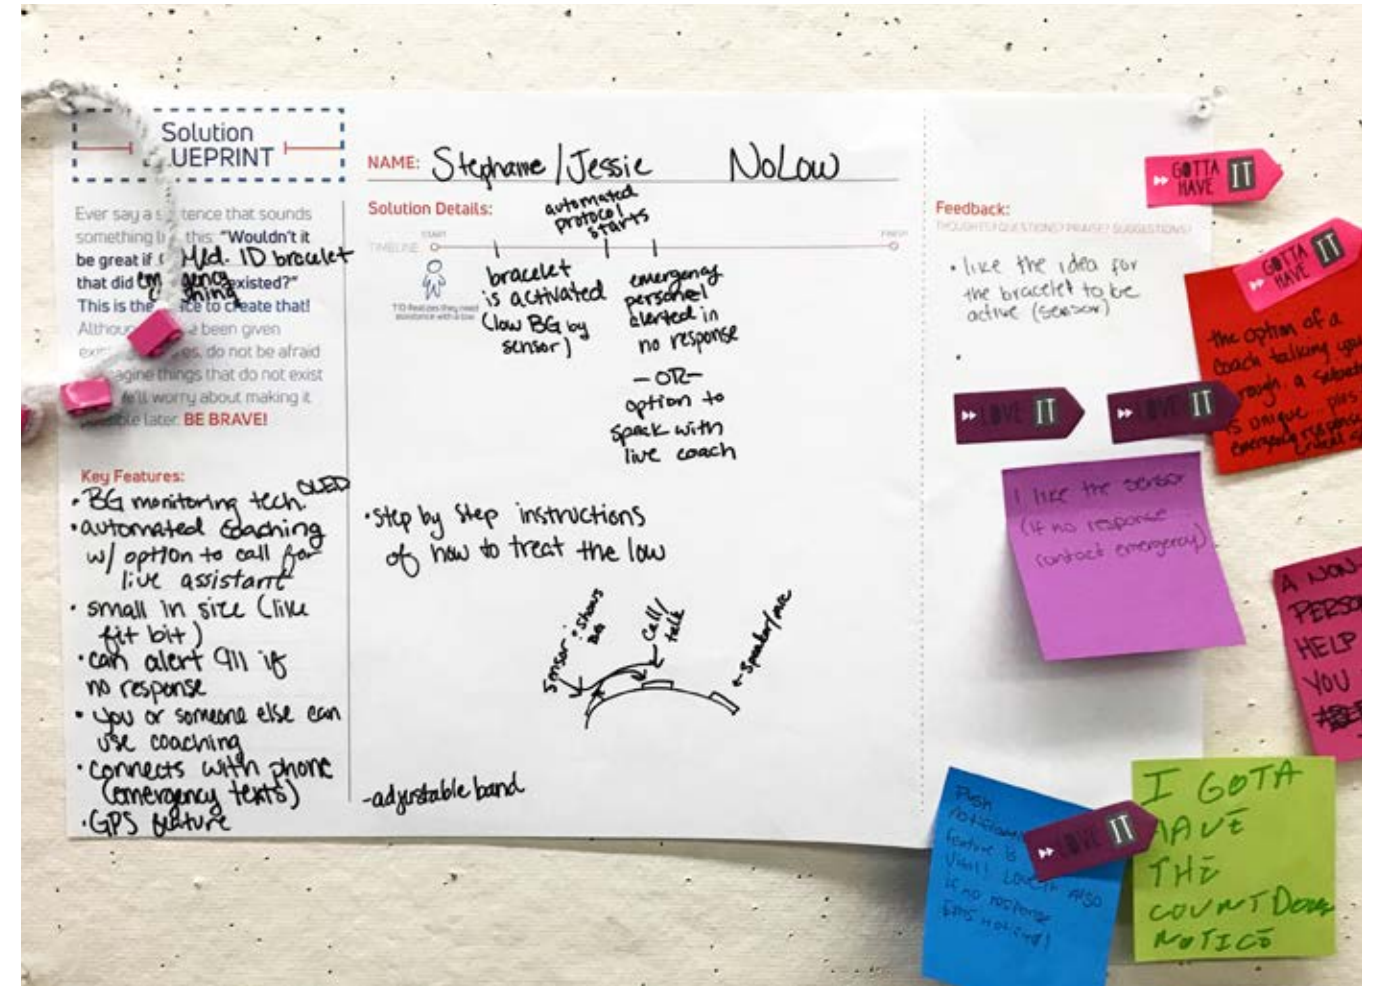 Solution
UEPRINT
NAME: Stephanie / Jessie NoLow
Ever say a s tence that sounds
something li this: "Wouldn't it
be great if Med. ID bracelet
that did existed?"
This is the ce to create that!
been given
es, do not be afraid
agine things that do not exist
'll worry about making it
later. BE BRAVE!
Key Features:
• BG monitoring tech. OLED
• automated coaching
w/ option to call for
live assistant
• small in size (like
fit bit)
• can alert 911 if
no response
• you or someone else can
use coaching
• connects with phone
(emergency texts)
• GPS feature
Solution Details:
automated
protocol
starts
TIMELINE START FINISH
T1D Realizes they need
assistance with a low
bracelet
is activated
(low BG by
sensor)
emergency
personel
alerted in
no response
— OR —
option to
speak with
live coach
• Step by Step instructions
of how to treat the low
sensor • shows
BG
Call/
talk
← speaker/mic
- adjustable band
Feedback:
THOUGHTS? QUESTIONS? PRAISE? SUGGESTIONS?
• like the idea for
the bracelet to be
active (sensor)
•
GOTTA
HAVE IT
GOTTA
HAVE IT
the option of a
coach talking you
rough, a
is unique... plus
emergency response
LOVE IT
LOVE IT
I like the sensor
(if no response
contact emergency)
A NON-
PERSO
HELP
YOU
Push
feature is
Vital! Love it also
if no response
EMS notified!
LOVE IT
I GOTA
HAVE
THE
COUNTDOWN
NOTICE